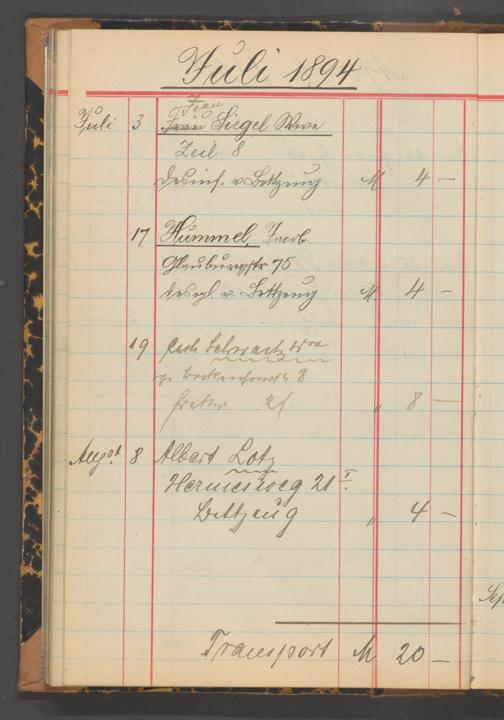 Juli 1894
Frau
Juli 3 Frau Siegel Wwe
Zeil 8
Desinf. v. Bettzeug M 4 —
17 Hummel, Jacob
Glauburgstr 75
desgl. v. Bettzeug M 4 —
19 Schwartz Wwe
8
21 " 8 —
Augst. 8 Albert Lotz
Hermesweg 21 I.
Bettzeug " 4 —
Transport M 20 —
Sep